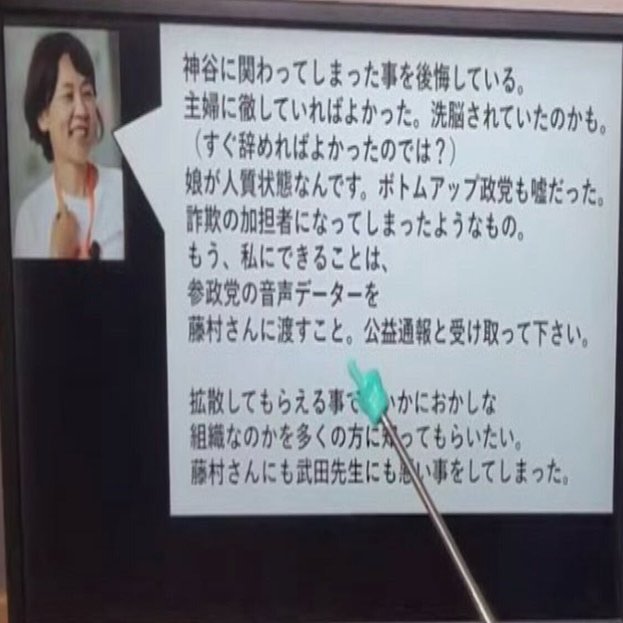 神谷に関わってしまった事を後悔している。
主婦に徹していればよかった。洗脳されていたのかも。
（すぐ辞めればよかったのでは？）
娘が人質状態なんです。ボトムアップ政党も嘘だった。
詐欺の加担者になってしまったようなもの。
もう、私にできることは、
参政党の音声データーを
藤村さんに渡すこと。公益通報と受け取って下さい。
拡散してもらえる事で かにおかしな
組織なのかを多くの方に知ってもらいたい。
藤村さんにも武田先生にも悪い事をしてしまった。